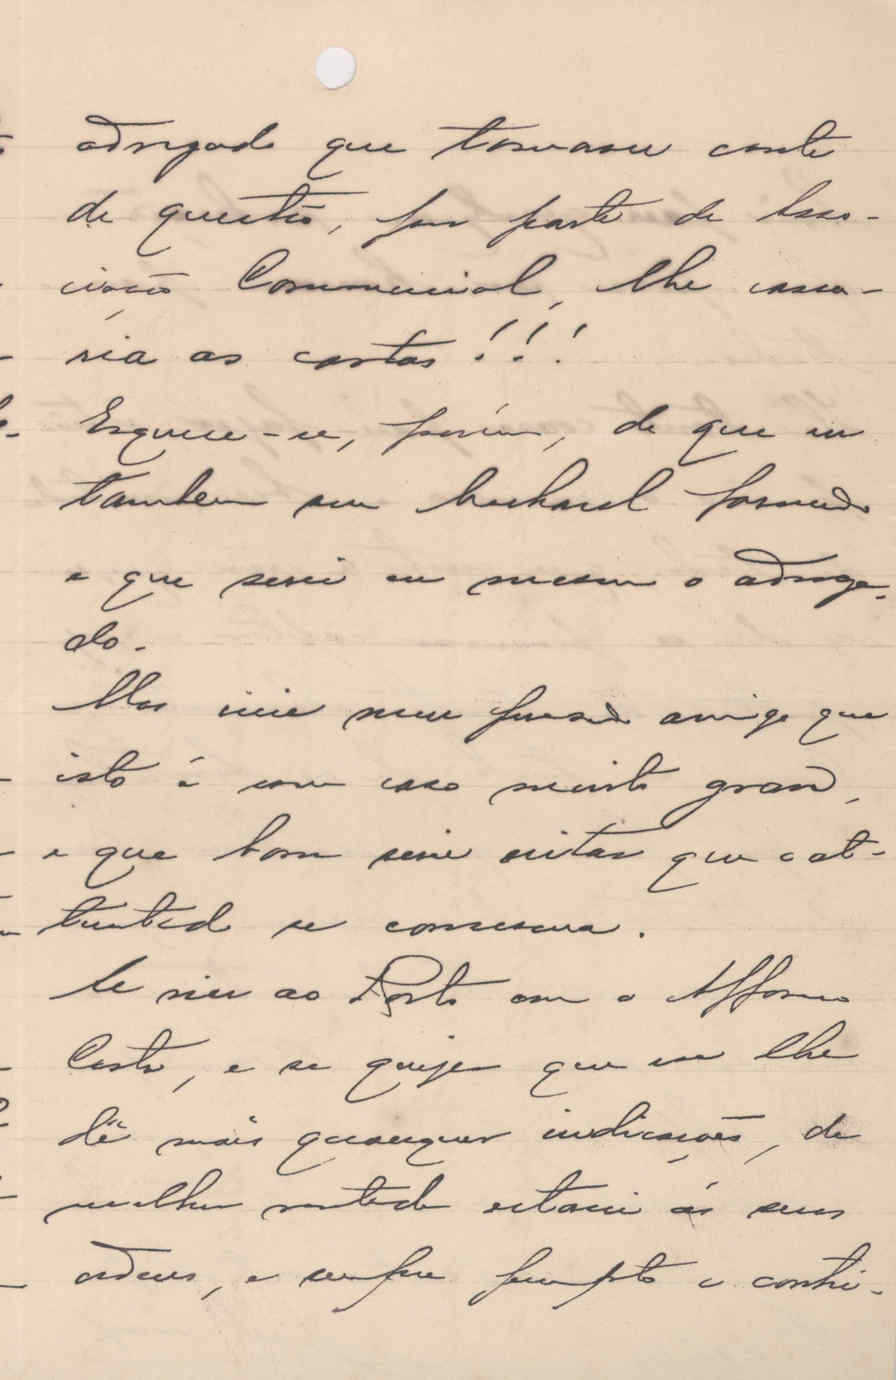 advogado que tomasse conta
da questão, por parte da Asso-
ciação Commercial, lhe cassa-
ria as cartas!!!
Esquece-se, porém, de que eu
tambem sou bacharel formado
e que serei eu mesmo o advoga-
do.
Mas veja meu presado amigo que
isto é um caso muito grave,
e que bom seria evitar que o at-
tentado se consumma.
Se vier ao Porto com o Affonso
Costa, e se quizer que eu lhe
dê mais quaesquer indicações, de
melhor vontade estarei ás suas
ordens, e sempre prompto a conti-